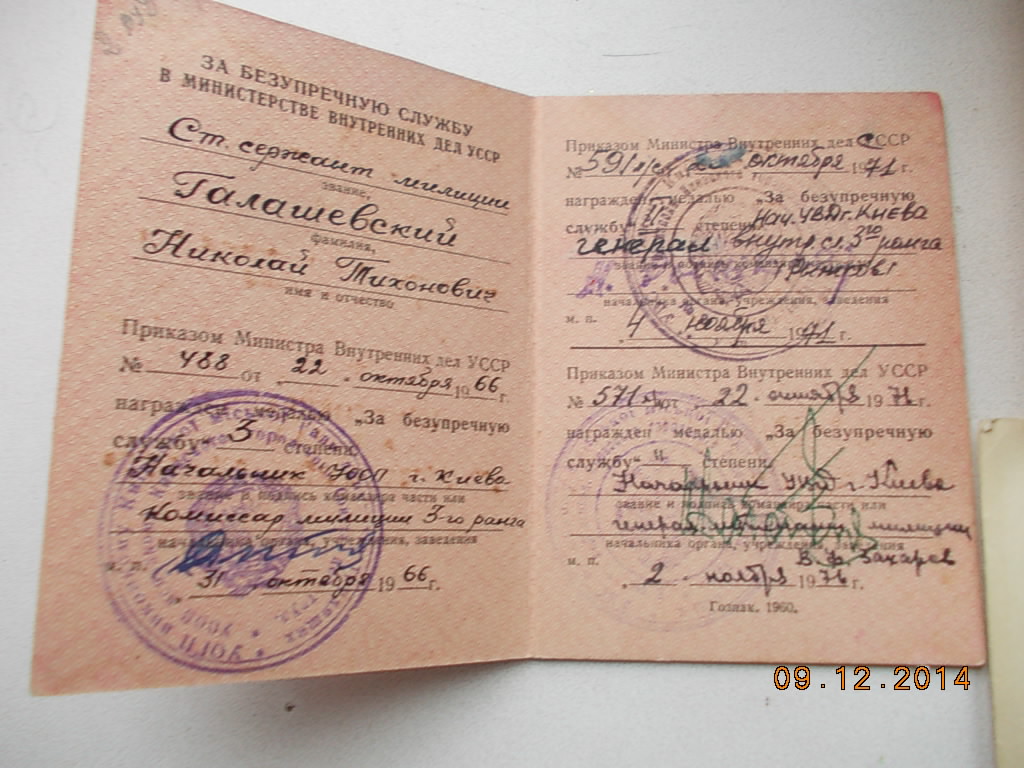 ЗА БЕЗУПРЕЧНУЮ СЛУЖБУ
В МИНИСТЕРСТВЕ ВНУТРЕННИХ ДЕЛ УССР
Ст. сержант милиции
звание,
Галашевский
фамилия,
Николай Тихонович
имя и отчество
Приказом Министра Внутренних дел УССР
№ 488 от 22 октября 1966 г.
награжден медалью „За безупречную
службу" 3 степени
Начальник УООП г. Киева
звание и подпись командира части или
Комиссар милиции 3-го ранга
начальника органа, учреждения, заведения
м. п.
31 октября 1966 г.
Приказом Министра Внутренних дел СССР
№ 591 октября 1971 г.
награжден медалью „За безупречную
службу" II степени
Нач. УВД г. Киева
генерал внутр. сл. 3го ранга
начальника органа, учреждения, заведения
м. п. 4 ноября 1971 г.
Приказом Министра Внутренних дел УССР
№ 571 от 22 октября 1976 г.
награжден медалью „За безупречную
службу" степени
Начальник УВД г. Киева
звание и подпись командира части или
генерал милиции
начальника органа, учреждения, заведения
В. Ф. Захарев
м. п. 2 ноября 1976 г.
Гознак. 1960.
09.12.2014